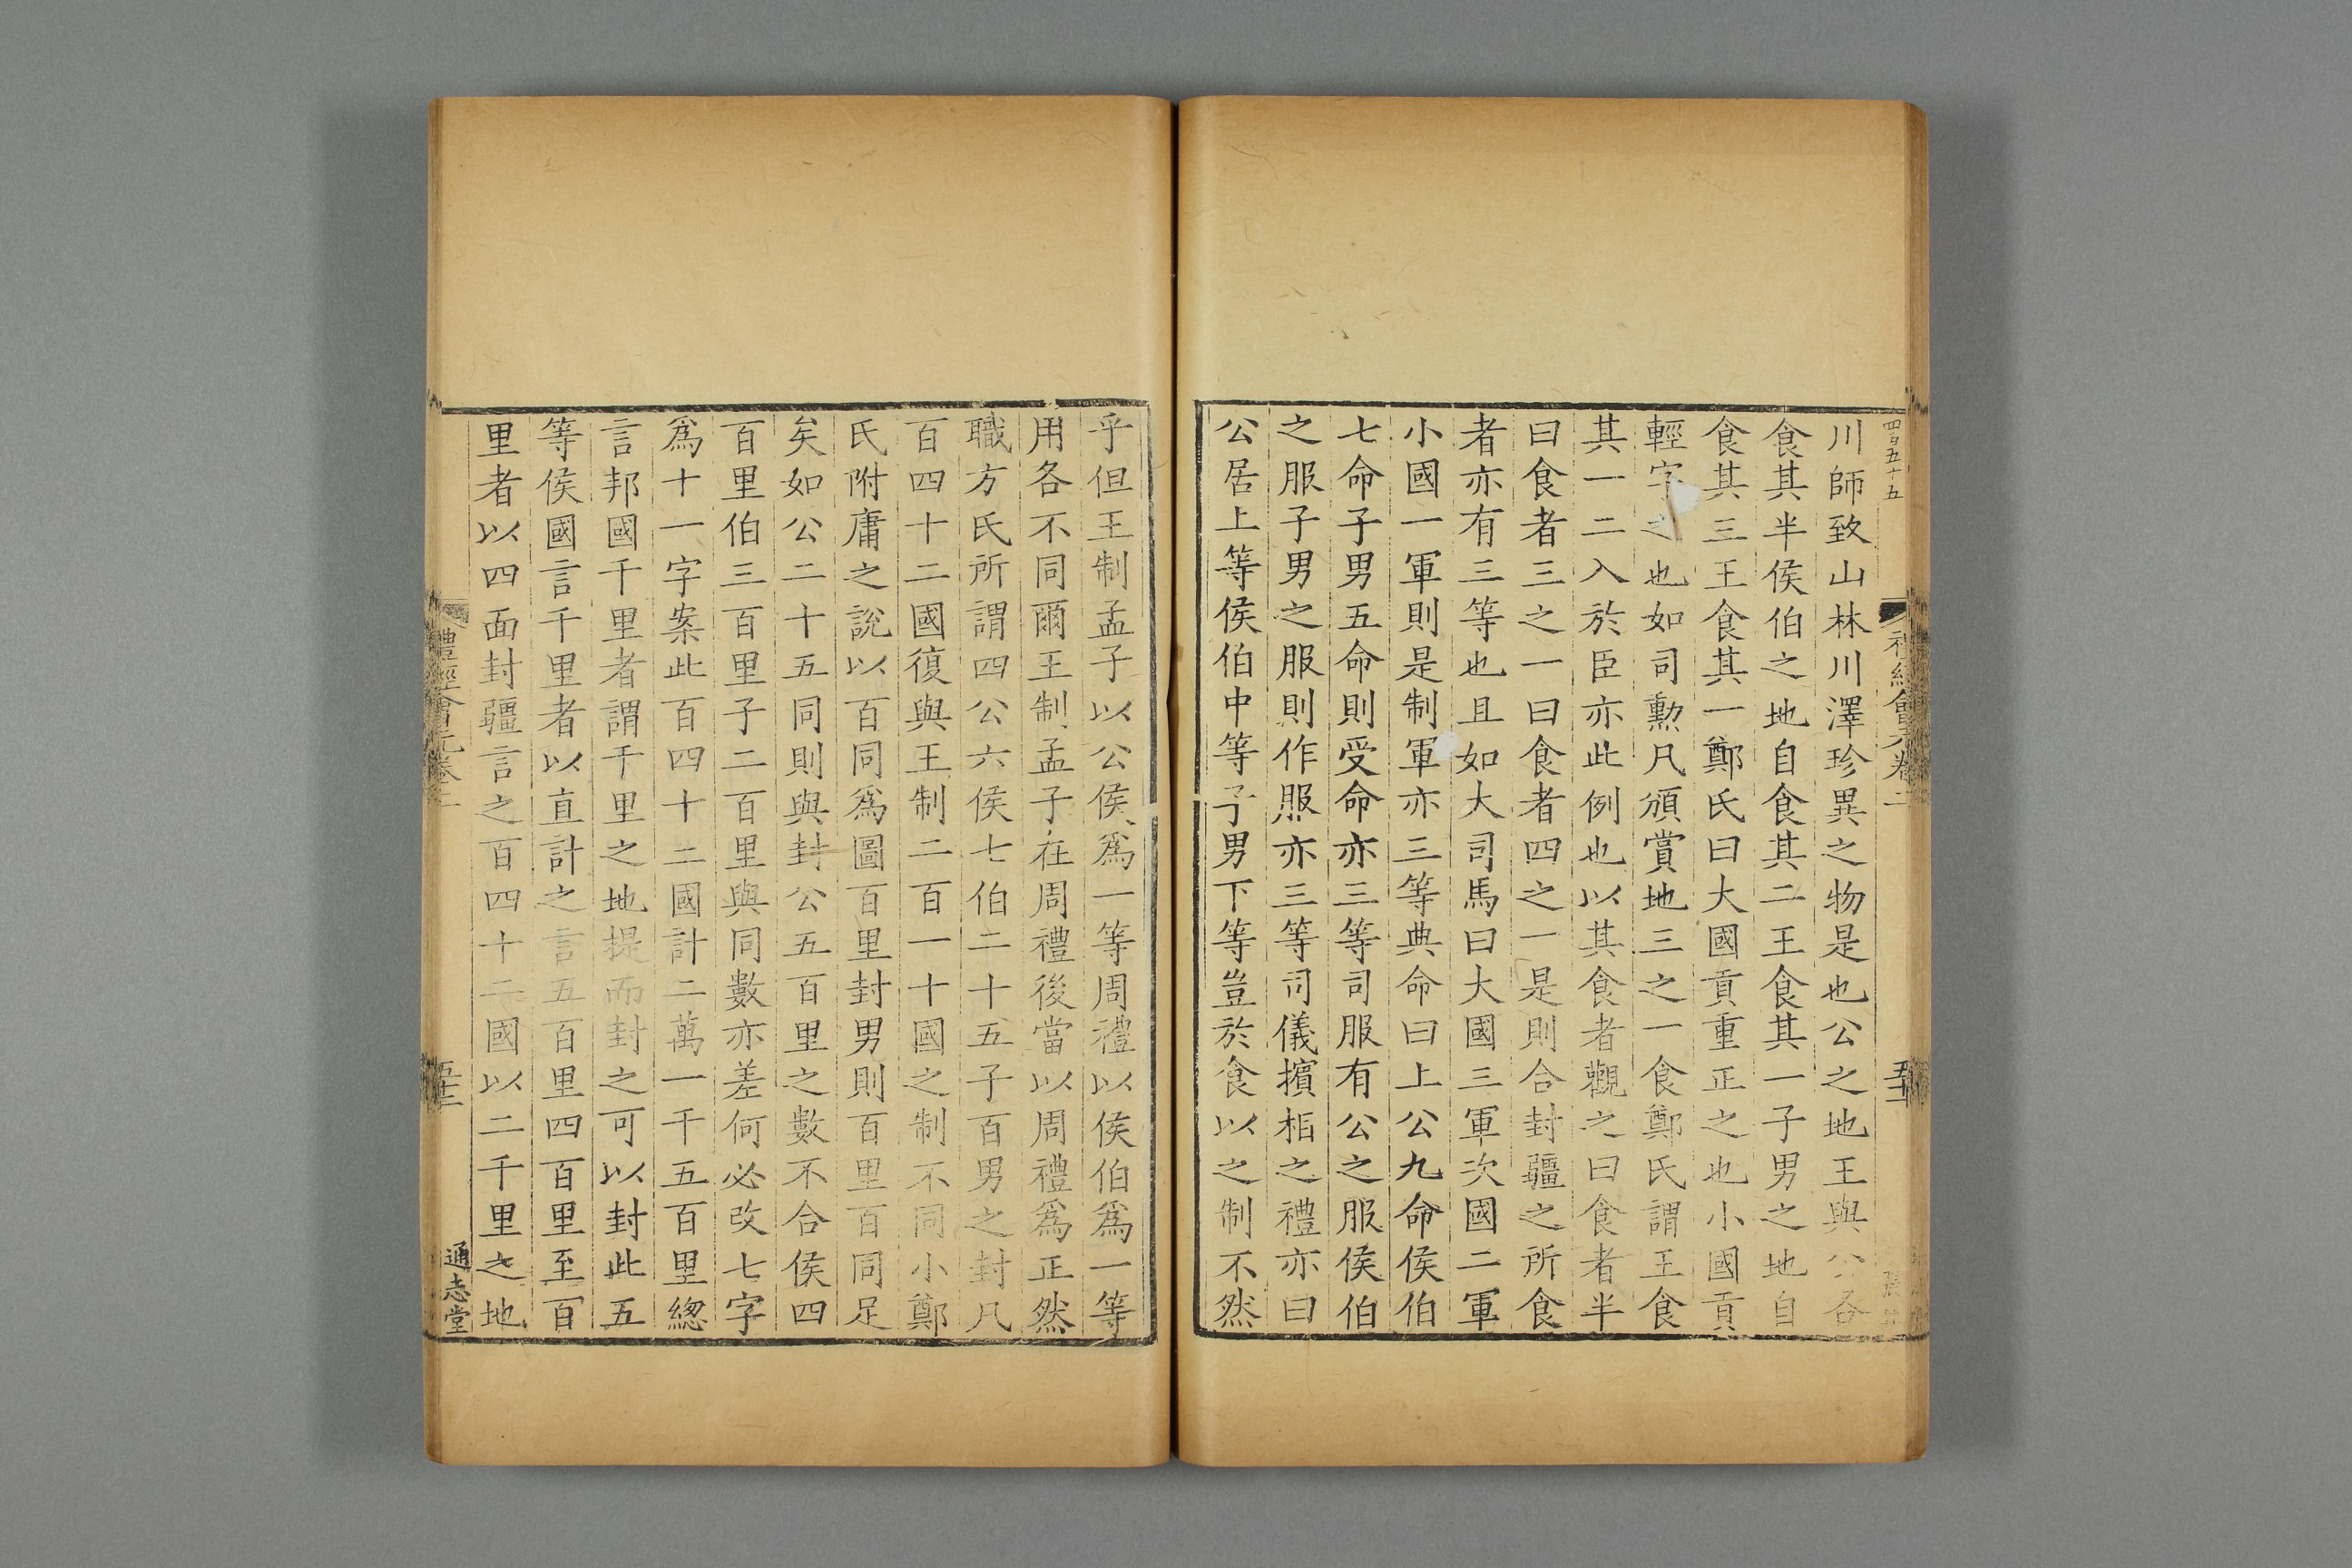 四百五十五
川師致山林川澤珍異之物是也公之地王與公各
食其半侯伯之地自食其二王食其一子男之地自
食其三王食其一鄭氏曰大國貢重正之也小國貢
輕字之也如司勳凡頒賞地三之一食鄭氏謂王食
其一二入於臣亦此例也以其食者觀之曰食者半
曰食者三之一曰食者四之一是則合封疆之所食
者亦有三等也且如大司馬曰大國三軍次國二軍
小國一軍則是制軍亦三等典命曰上公九命侯伯
七命子男五命則受命亦三等司服有公之服侯伯
之服子男之服則作服亦三等司儀擯相之禮亦曰
公居上等侯伯中等子男下等豈於食以之制不然
乎但王制孟子以公侯爲一等周禮以侯伯爲一等
用各不同爾王制孟子在周禮後當以周禮爲正然
職方氏所謂四公六侯七伯二十五子百男之封凡
百四十二國復與王制二百一十國之制不同小鄭
氏附庸之說以百同爲圖百里封男則百里百同足
矣如公二十五同則與封公五百里之數不合侯四
百里伯三百里子二百里與同數亦差何必改七字
爲十一字案此百四十二國計二萬一千五百里緫
言邦國千里者謂千里之地提而封之可以封此五
等侯國言千里者以直計之言五百里四百里至百
里者以四面封疆言之百四十二國以二千里之地
禮經會元卷二
通志堂